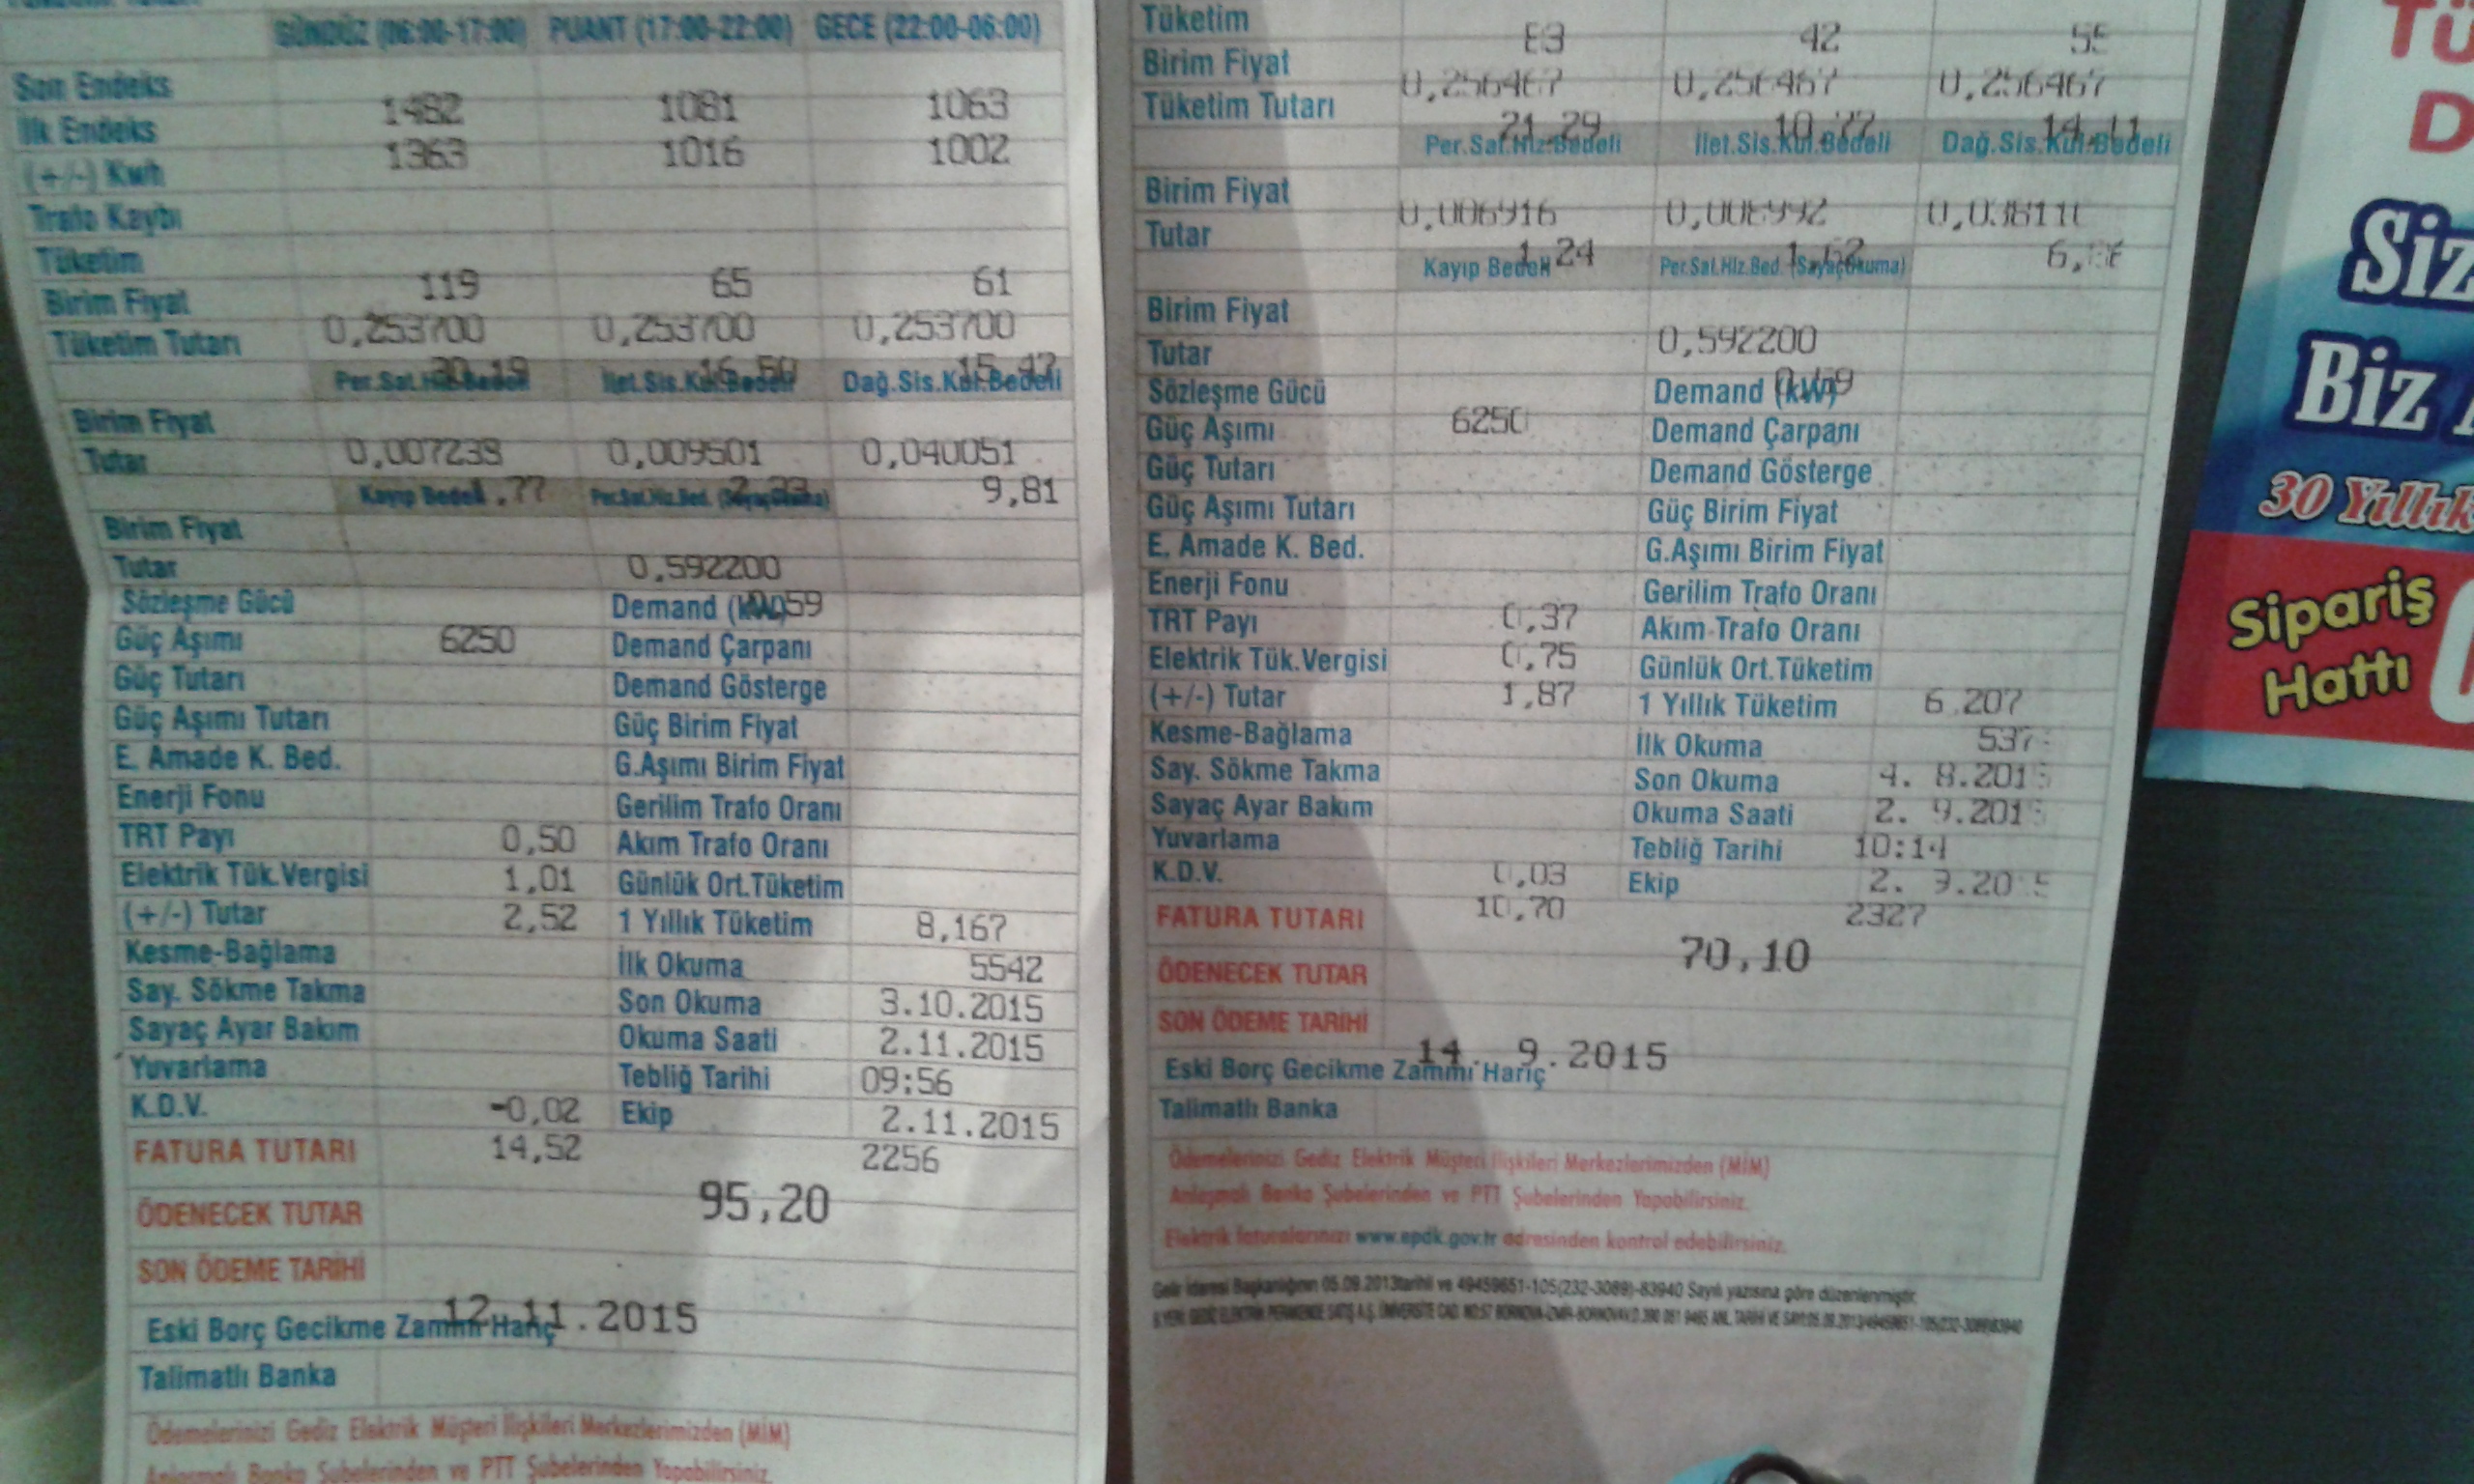 GÜNDÜZ (06:00-17:00) PUANT (17:00-22:00) GECE (22:00-06:00)
Son Endeks
1482 1081 1063
İlk Endeks
1363 1016 1002
(+/-) Kwh
Trafo Kaybı
Tüketim
119 65 61
Birim Fiyat
0,253700 0,253700 0,253700
Tüketim Tutarı
30,19 16,50 15,47
Per.Sat.Hiz.Bedeli İlet.Sis.Kul.Bedeli Dağ.Sis.Kul.Bedeli
Birim Fiyat
0,007239 0,009501 0,040051
Tutar
,77 2,33 9,81
Kayıp Bedeli Per.Sat.Hiz.Bed. (Sayaç Okuma)
Birim Fiyat
0,592200
Tutar
0,59
Sözleşme Gücü Demand (kW)
6250
Güç Aşımı Demand Çarpanı
Güç Tutarı Demand Gösterge
Güç Aşımı Tutarı Güç Birim Fiyat
E. Amade K. Bed. G.Aşımı Birim Fiyat
Enerji Fonu Gerilim Trafo Oranı
TRT Payı 0,50 Akım Trafo Oranı
Elektrik Tük.Vergisi 1,01 Günlük Ort.Tüketim
(+/-) Tutar 2,52 1 Yıllık Tüketim 8,167
Kesme-Bağlama İlk Okuma 5542
Say. Sökme Takma Son Okuma 3.10.2015
Sayaç Ayar Bakım Okuma Saati 2.11.2015
Yuvarlama Tebliğ Tarihi 09:56
K.D.V. -0,02 Ekip 2.11.2015
FATURA TUTARI 14,52 2256
95,20
ÖDENECEK TUTAR
SON ÖDEME TARİHİ
12.11.2015
Eski Borç Gecikme Zammı Hariç
Talimatlı Banka
Ödemelerinizi Gediz Elektrik Müşteri İlişkileri Merkezlerimizden (MİM)
Anlaşmalı Banka Şubelerinden ve PTT Şubelerinden Yapabilirsiniz.
Tüketim
83 42 55
Birim Fiyat
0,256467 0,256467 0,256467
Tüketim Tutarı
21,29 10,77 14,11
Per.Sat.Hiz.Bedeli İlet.Sis.Kul.Bedeli Dağ.Sis.Kul.Bedeli
Birim Fiyat
0,006916 0,008992 0,038110
Tutar
1,24 1,62
Kayıp Bedeli Per.Sat.Hiz.Bed. (Sayaç Okuma)
Birim Fiyat
0,592200
Tutar
0,59
Sözleşme Gücü Demand (kW)
6250
Güç Aşımı Demand Çarpanı
Güç Tutarı Demand Gösterge
Güç Aşımı Tutarı Güç Birim Fiyat
E. Amade K. Bed. G.Aşımı Birim Fiyat
Enerji Fonu Gerilim Trafo Oranı
0,37
TRT Payı Akım Trafo Oranı
Elektrik Tük.Vergisi 0,75 Günlük Ort.Tüketim
(+/-) Tutar 1,87 1 Yıllık Tüketim 6.207
Kesme-Bağlama İlk Okuma
Say. Sökme Takma Son Okuma 4. 8.2015
Sayaç Ayar Bakım Okuma Saati 2. 9.2015
Yuvarlama Tebliğ Tarihi 10:14
K.D.V. 0,03 Ekip 2. 9.2015
FATURA TUTARI 10,70 2327
70,10
ÖDENECEK TUTAR
SON ÖDEME TARİHİ
14. 9.2015
Eski Borç Gecikme Zammı Hariç
Talimatlı Banka
Ödemelerinizi Gediz Elektrik Müşteri İlişkileri Merkezlerimizden (MİM)
Anlaşmalı Banka Şubelerinden ve PTT Şubelerinden Yapabilirsiniz.
Elektrik faturalarınızı www.epdk.gov.tr adresinden kontrol edebilirsiniz.
Gelir İdaresi Başkanlığının 05.09.2013tarihli ve 49459651-105(232-3089)-83940 Sayılı yazısına göre düzenlenmiştir.
TÜ
D
Siz
Biz
30 Yıllık
Sipariş
Hattı